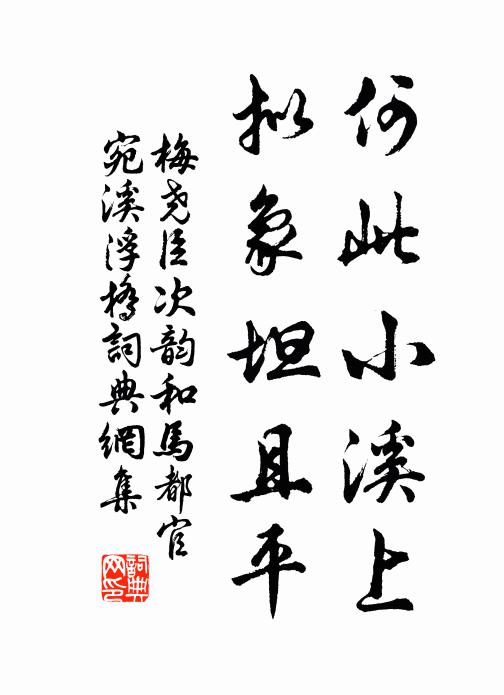 何此小溪上
拟象坦且平
梅尧臣次韵和馬都官
宛溪浮橋詞典網集
詞典网印